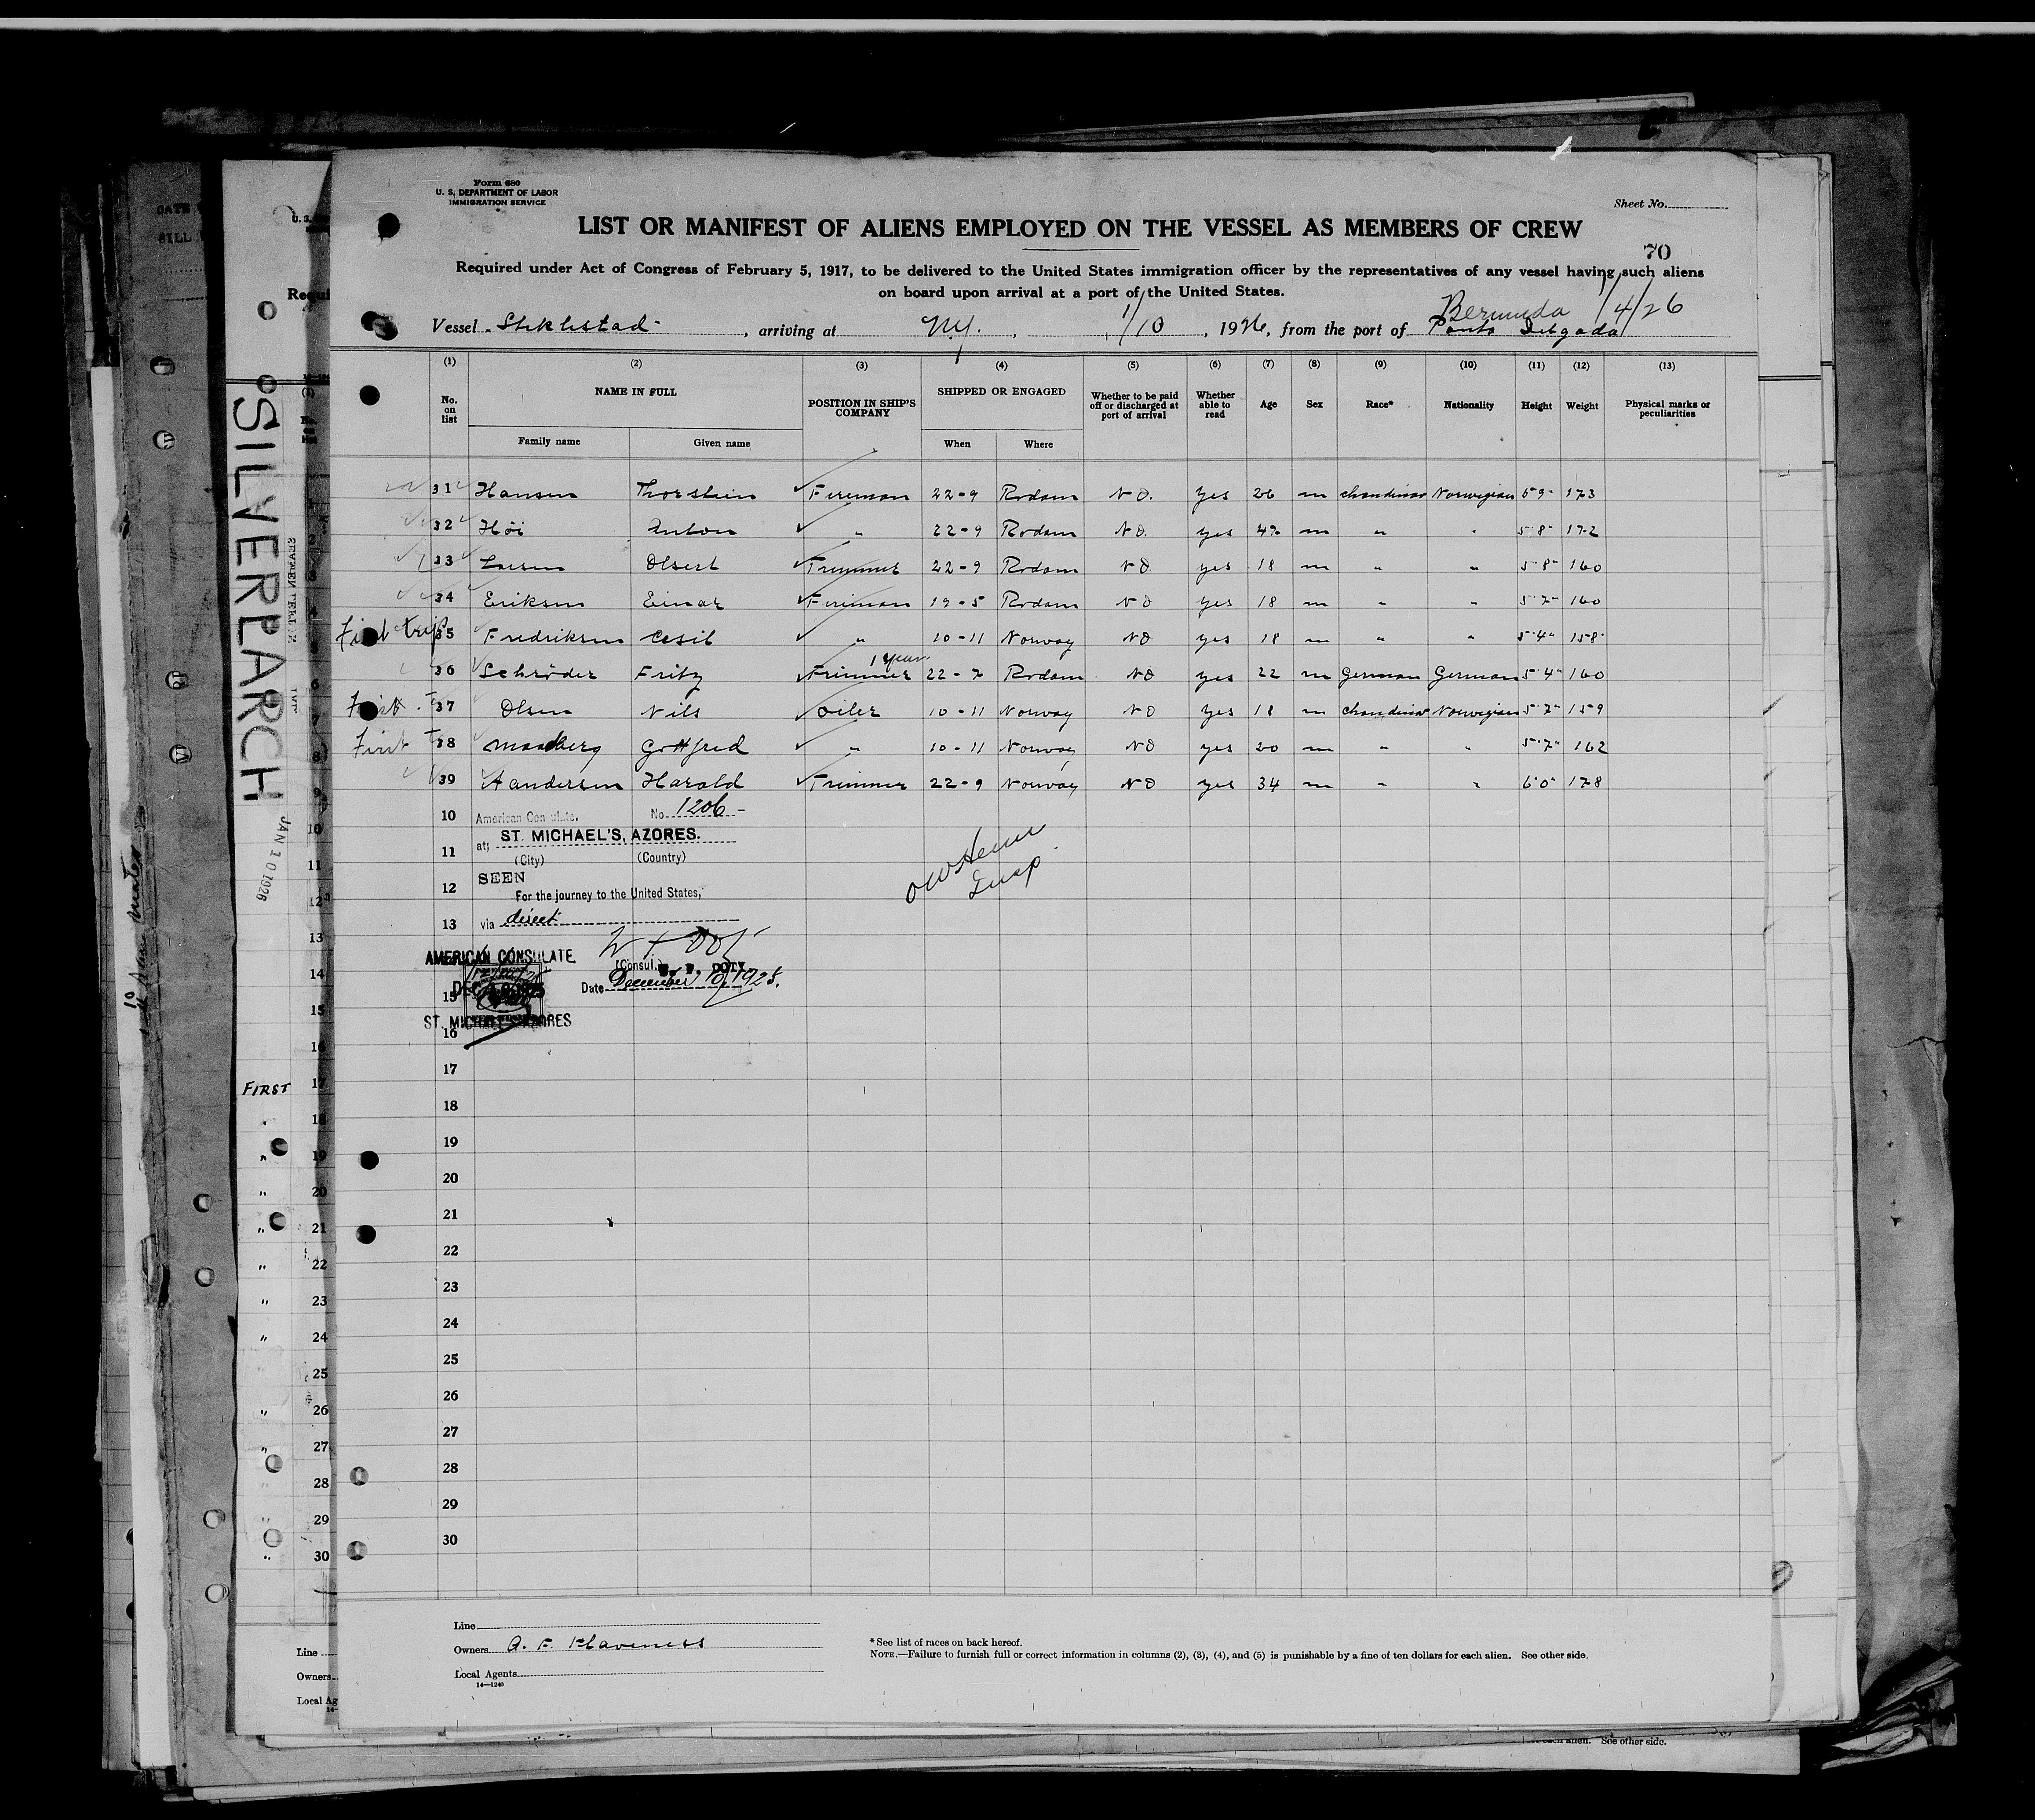 Form 680
U. S. DEPARTMENT OF LABOR
IMMIGRATION SERVICE
Sheet No.
LIST OR MANIFEST OF ALIENS EMPLOYED ON THE VESSEL AS MEMBERS OF CREW
70
Required under Act of Congress of February 5, 1917, to be delivered to the United States immigration officer by the representatives of any vessel having such aliens
on board upon arrival at a port of the United States.
Bermuda 1/4/26
Vessel Stiklestad, arriving at N.Y., 1/10, 1926, from the port of Ponta Delgada
(1) (2) (3) (4) (5) (6) (7) (8) (9) (10) (11) (12) (13)
No. on list NAME IN FULL POSITION IN SHIP'S COMPANY SHIPPED OR ENGAGED Whether to be paid off or discharged at port of arrival Whether able to read Age Sex Race* Nationality Height Weight Physical marks or peculiarities
Family name Given name When Where
31 Hansen Thorstein Fireman 22-9 Rrdam NO. Yes 26 m Norwegian 5 9 173
32 Höi Anton " 22-9 Rrdam NO. yes m " " 5 8 172
33 Olsert Trimmer 22-9 Rrdam NO yes 18 m " " 5 8 160
34 Eriksen Einar Fireman 19-5 Rrdam NO yes 18 m " " 5 7 160
First trip 35 Fredriksen " 10-11 Norway NO yes 18 m " " 5 4 158
1 year
36 Schröder Fritz Trimmer 22-7 Rrdam NO yes 22 m German German 5 4 160
First T 37 Olsen Nils oiler 10-11 Norway NO yes 18 m Norwegian 5 7 159
First T 38 Gottfred " 10-11 Norway NO yes 20 m " " 5 7 162
39 Aandersen Harald Trimmer 22-9 Norway NO yes 34 m " " 6 0 178
10 American Consulate, No. 1206-
at; ST. MICHAEL'S, AZORES.
11 (City) (Country)
SEEN
12 For the journey to the United States,
13 via direct
AMERICAN CONSULATE
14 (Consul.) W. P. DOTY
15 Date December 10, 1925.
ST. MICHAEL'S AZORES
16
Insp
17
18
19
20
21
22
23
24
25
26
27
28
29
30
Line
Owners A. F. Klaveness
Local Agents
14—1240
*See list of races on back hereof.
NOTE.—Failure to furnish full or correct information in columns (2), (3), (4), and (5) is punishable by a fine of ten dollars for each alien. See other side.
SILVERLARCH
JAN 10 1926
FIRST
Line
Owners
Local Ag
See other side.